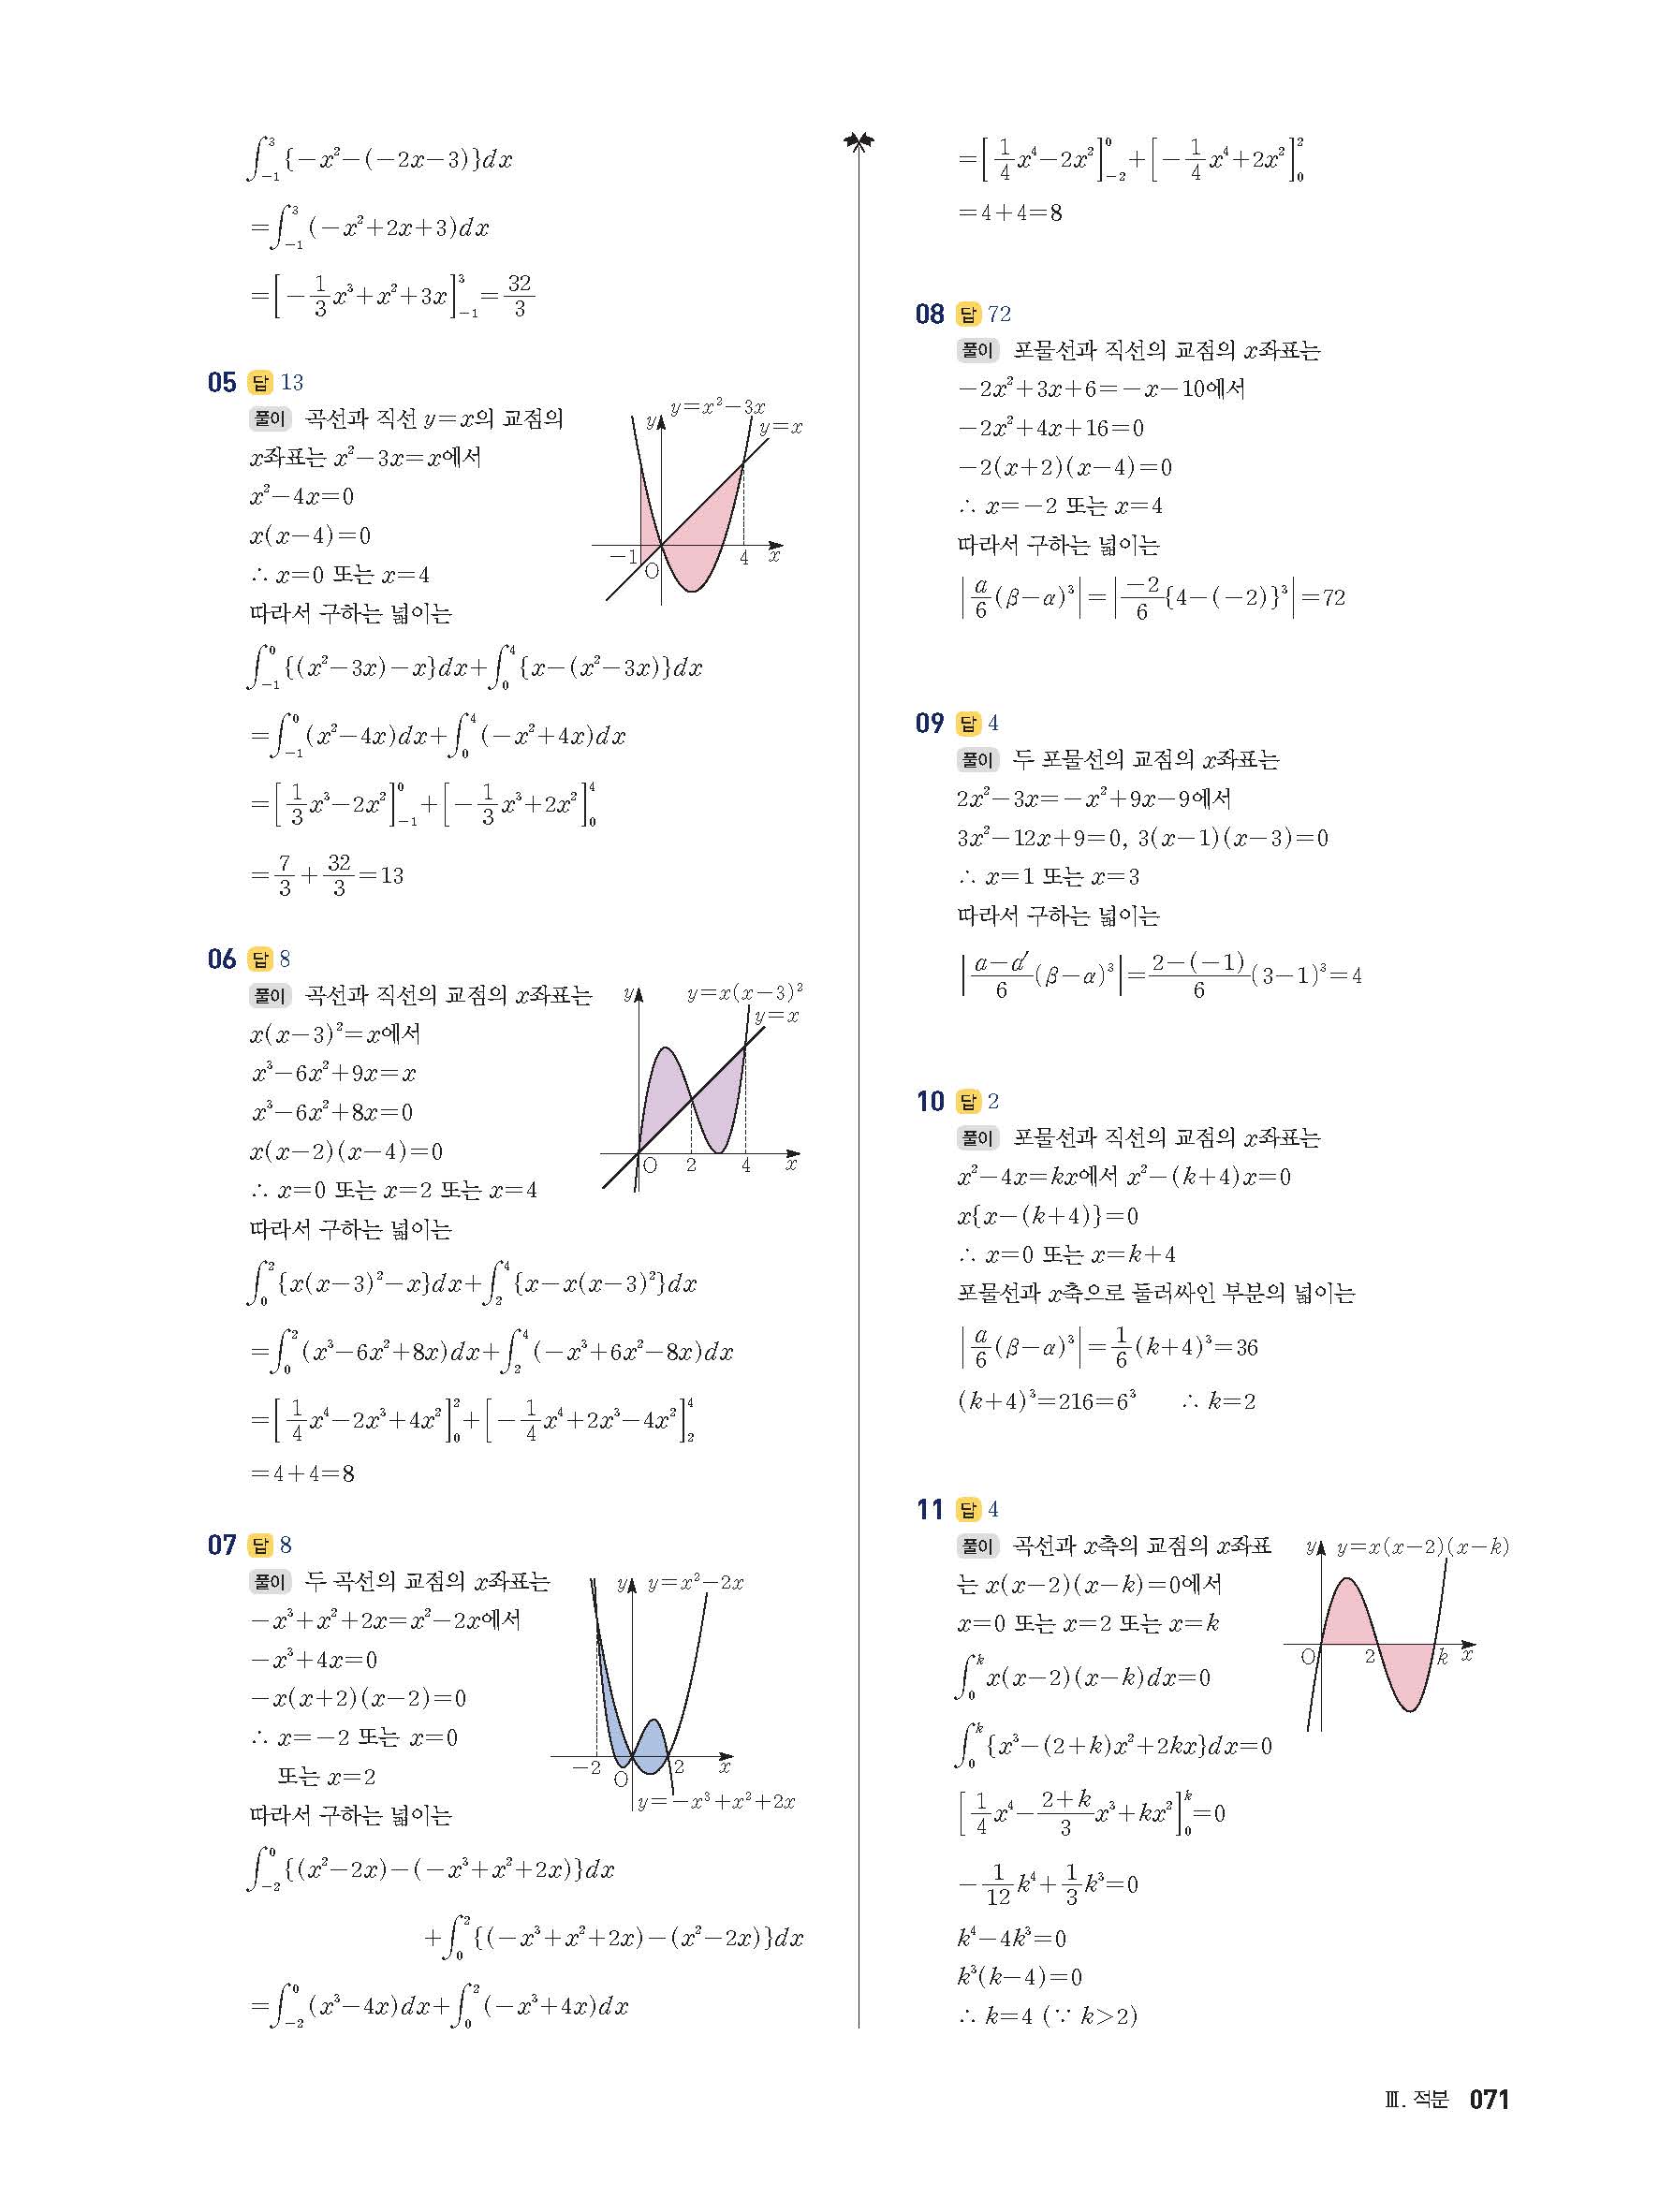 ∫_{-1}^{3} {-x²-(-2x-3)}dx
=∫_{-1}^{3} (-x²+2x+3)dx
=[-1/3 x³+x²+3x]_{-1}^{3}=32/3
05 답 13
풀이 곡선과 직선 y=x의 교점의
x좌표는 x²-3x=x에서
x²-4x=0
x(x-4)=0
∴ x=0 또는 x=4
따라서 구하는 넓이는
y
y=x²-3x
y=x
-1
O
4
x
∫_{-1}^{0} {(x²-3x)-x}dx+∫_{0}^{4} {x-(x²-3x)}dx
=∫_{-1}^{0} (x²-4x)dx+∫_{0}^{4} (-x²+4x)dx
=[1/3 x³-2x²]_{-1}^{0}+[-1/3 x³+2x²]_{0}^{4}
=7/3+32/3=13
06 답 8
풀이 곡선과 직선의 교점의 x좌표는
x(x-3)²=x에서
x³-6x²+9x=x
x³-6x²+8x=0
x(x-2)(x-4)=0
∴ x=0 또는 x=2 또는 x=4
따라서 구하는 넓이는
y
y=x(x-3)²
y=x
O
2
4
x
∫_{0}^{2} {x(x-3)²-x}dx+∫_{2}^{4} {x-x(x-3)²}dx
=∫_{0}^{2} (x³-6x²+8x)dx+∫_{2}^{4} (-x³+6x²-8x)dx
=[1/4 x⁴-2x³+4x²]_{0}^{2}+[-1/4 x⁴+2x³-4x²]_{2}^{4}
=4+4=8
07 답 8
풀이 두 곡선의 교점의 x좌표는
-x³+x²+2x=x²-2x에서
-x³+4x=0
-x(x+2)(x-2)=0
∴ x=-2 또는 x=0
또는 x=2
따라서 구하는 넓이는
y
y=x²-2x
-2
O
2
x
y=-x³+x²+2x
∫_{-2}^{0} {(x²-2x)-(-x³+x²+2x)}dx
+∫_{0}^{2} {(-x³+x²+2x)-(x²-2x)}dx
=∫_{-2}^{0} (x³-4x)dx+∫_{0}^{2} (-x³+4x)dx
=[1/4 x⁴-2x²]_{-2}^{0}+[-1/4 x⁴+2x²]_{0}^{2}
=4+4=8
08 답 72
풀이 포물선과 직선의 교점의 x좌표는
-2x²+3x+6=-x-10에서
-2x²+4x+16=0
-2(x+2)(x-4)=0
∴ x=-2 또는 x=4
따라서 구하는 넓이는
|a/6 (β-α)³|=|-2/6 {4-(-2)}³|=72
09 답 4
풀이 두 포물선의 교점의 x좌표는
2x²-3x=-x²+9x-9에서
3x²-12x+9=0, 3(x-1)(x-3)=0
∴ x=1 또는 x=3
따라서 구하는 넓이는
|a-a′/6 (β-α)³|=2-(-1)/6 (3-1)³=4
10 답 2
풀이 포물선과 직선의 교점의 x좌표는
x²-4x=kx에서 x²-(k+4)x=0
x{x-(k+4)}=0
∴ x=0 또는 x=k+4
포물선과 x축으로 둘러싸인 부분의 넓이는
|a/6 (β-α)³|=1/6 (k+4)³=36
(k+4)³=216=6³ ∴ k=2
11 답 4
풀이 곡선과 x축의 교점의 x좌표
는 x(x-2)(x-k)=0에서
x=0 또는 x=2 또는 x=k
y
y=x(x-2)(x-k)
O
2
k
x
∫_{0}^{k} x(x-2)(x-k)dx=0
∫_{0}^{k} {x³-(2+k)x²+2kx}dx=0
[1/4 x⁴-2+k/3 x³+kx²]_{0}^{k}=0
-1/12 k⁴+1/3 k³=0
k⁴-4k³=0
k³(k-4)=0
∴ k=4 (∵ k>2)
Ⅲ. 적분 071